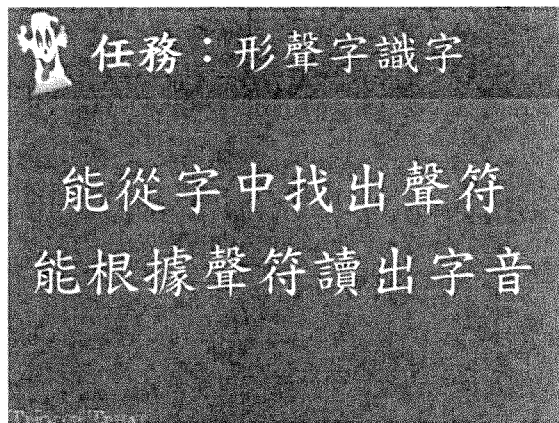 任務：形聲字識字
能從字中找出聲符
能根據聲符讀出字音